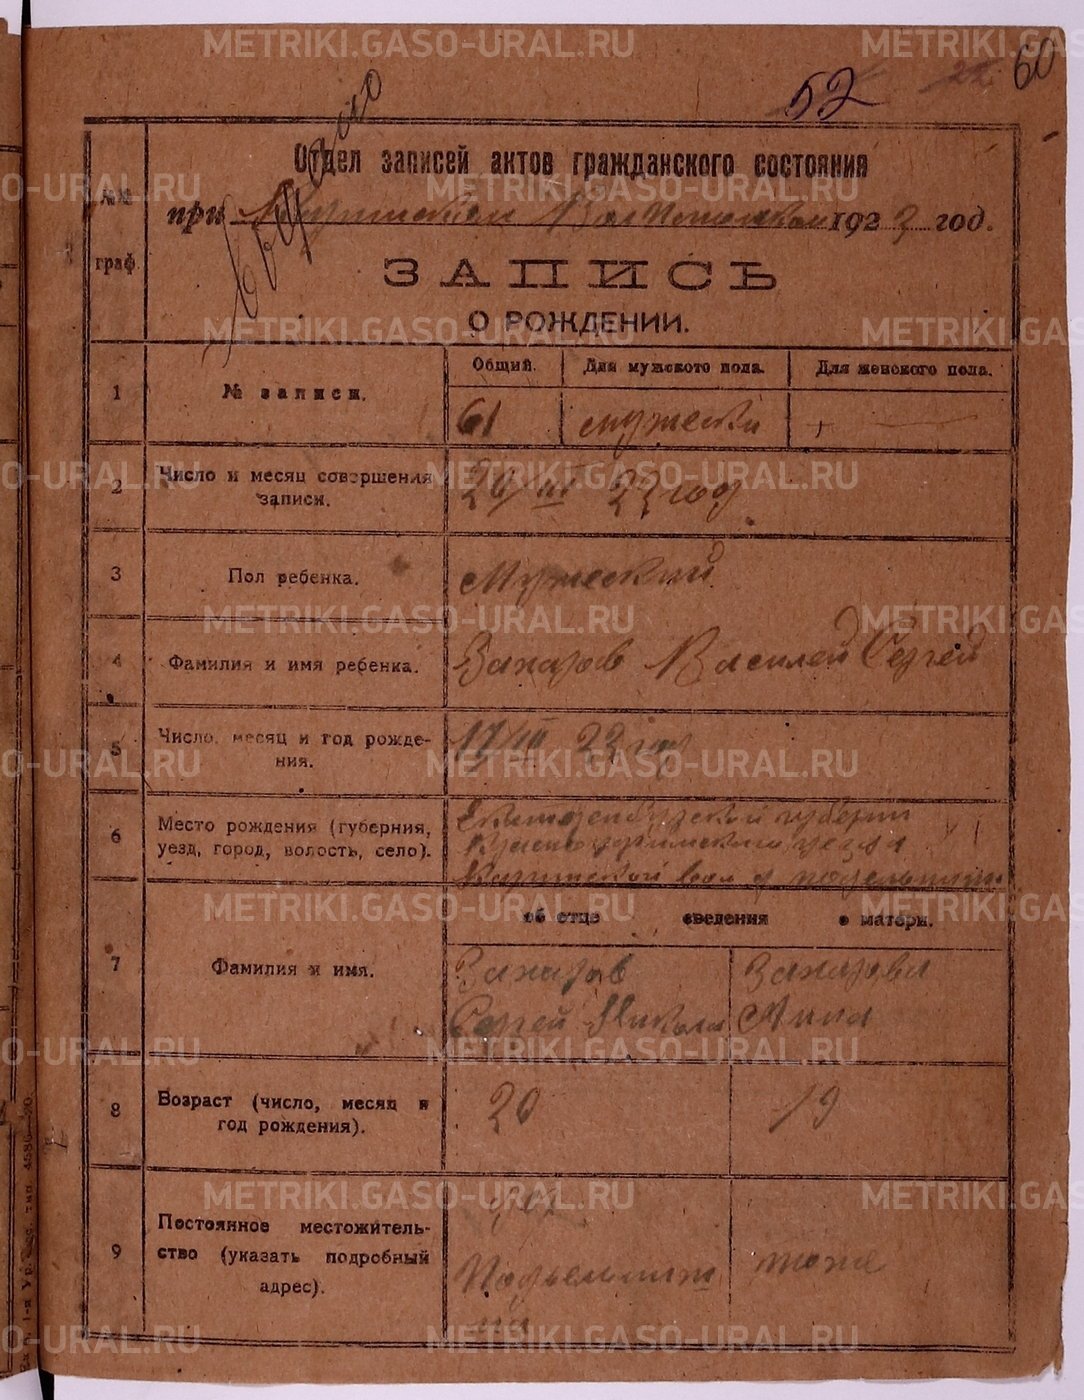 METRIKI.GASO-URAL.RU
60
52 22
Отдел записей актов гражданского состояния
№№ граф.
при 1923 год.
ЗАПИСЬ
О РОЖДЕНИИ.
1 № записи.
Общий. Для мужского пола. Для женского пола.
61 мужески
2 Число и месяц совершения записи.
23 год
3 Пол ребенка.
Мужеский
4 Фамилия и имя ребенка.
Захаров Василей Сергей
5 Число, месяц и год рождения.
17/III 23 год
6 Место рождения (губерния, уезд, город, волость, село).
Екатеренбургской губерни
уезда
7 Фамилия и имя.
об отце сведения о матери.
Захаров Захарова
Сергей Никола Анна
8 Возраст (число, месяц и год рождения).
20 19
9 Постоянное местожительство (указать подробный адрес).
тоже